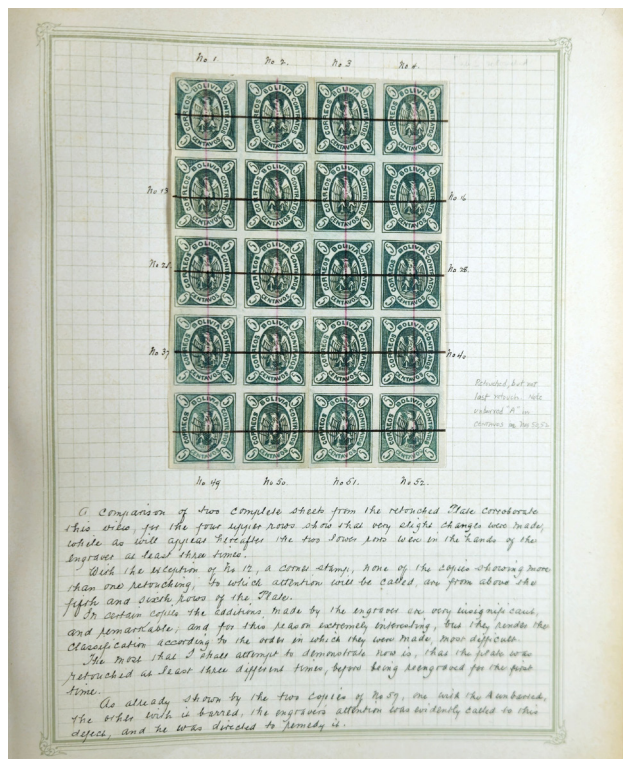 No 1. No 2. No 3 No 4.
No 13 No 16
No 25 No 28.
No 37 No 40
No 49 No 50. No 51. No 52.
CORREOS BOLIVIA CONTRATOS
CENTAVOS
Retouched, but not
last retouch. Note
"A" in
centavos in No 50.52.
A comparison of two complete sheets from the retouched Plate corroborate
this view, for the four upper rows show that very slight changes were made,
while as will appear hereafter the two lower rows were in the hands of the
engraver at least three times.
With the exception of No 12, a corner stamp, none of the copies showing more
than one retouching, to which attention will be called, are from above the
fifth and sixth rows of the Plate.
In certain copies the additions made by the engraver are very insignificant,
and remarkable, and for this reason extremely interesting, but they render the
classification according to the order in which they were made, most difficult.
The most that I shall attempt to demonstrate now is, that the plate was
retouched at least three different times, before being reengraved for the first
time.
As already shown by the two copies of No 57, one with the A unbarred,
the other with is barred, the engraver's attention was evidently called to this
defect, and he was directed to remedy it.